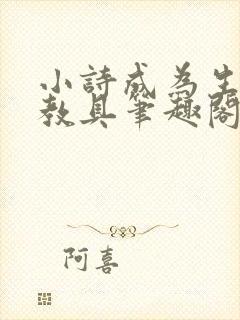 小詩成為生
教具筆趣閣
阿喜